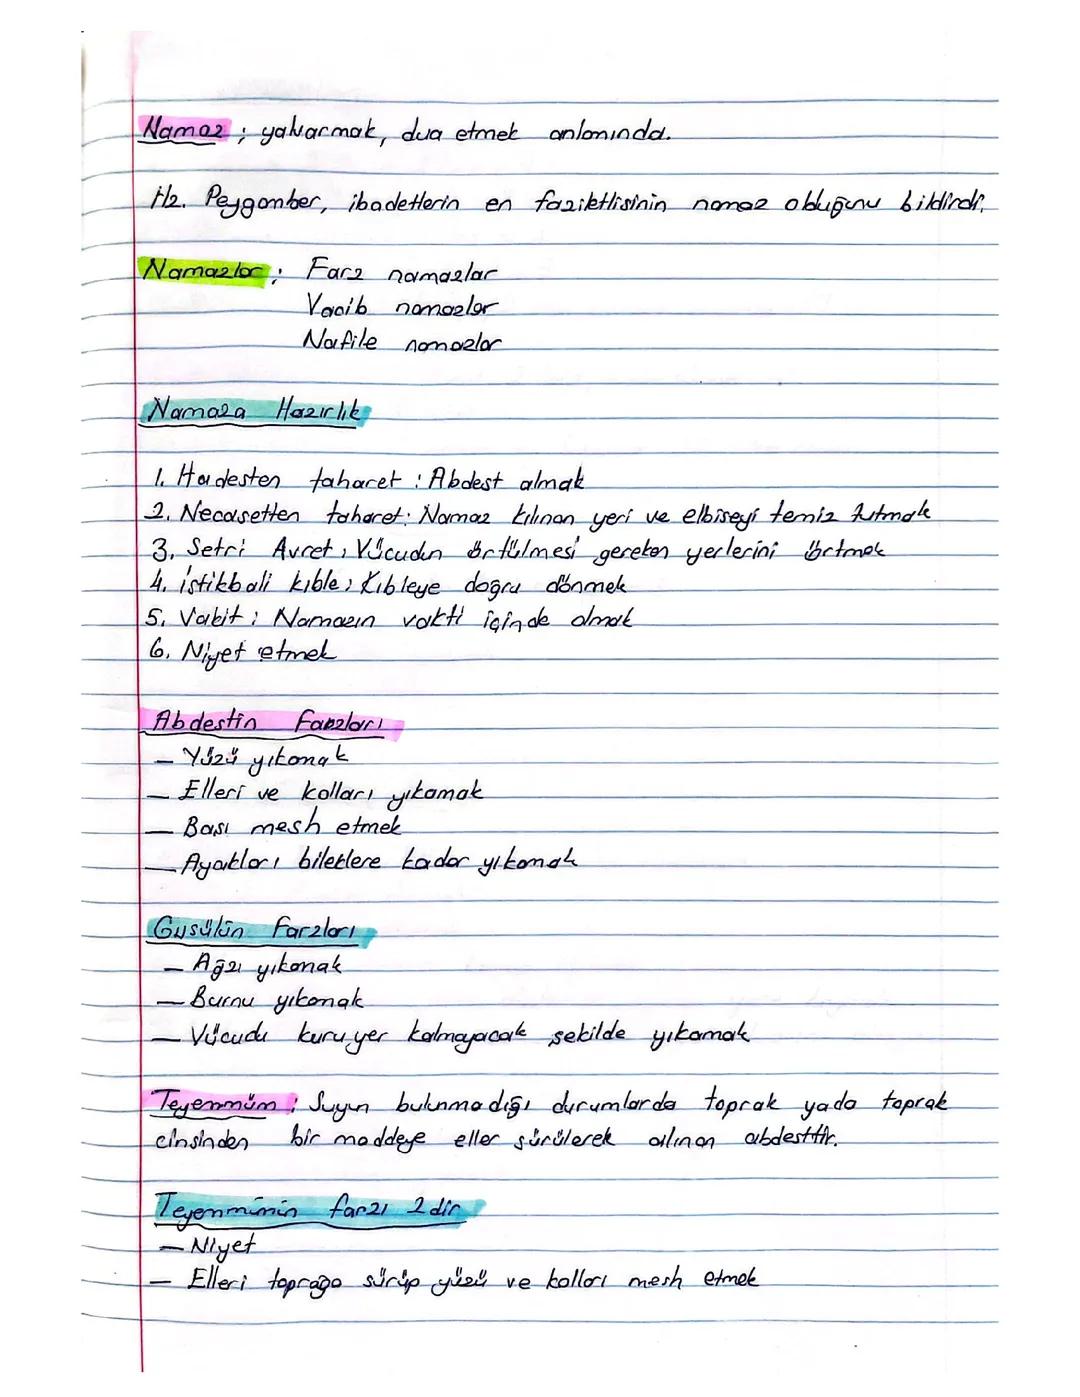 Namaz ; yalvarmak, dua etmek anlamında.
Hz. Peygamber, ibadetlerin en faziletlisinin namaz olduğunu bildirdi.
Namazlar ; Farz namazlar
Vacib namazlar
Nafile namazlar
Namaza Hazırlık
1. Hadesten taharet : Abdest almak
2. Necasetten taharet: Namaz kılınan yeri ve elbiseyi temiz tutmak
3. Setri Avret ; Vücudun örtülmesi gereken yerlerini örtmek
4. istikbali kıble ; Kıbleye doğru dönmek
5. Vakit ; Namazın vakti içinde olmak
6. Niyet etmek
Abdestin Farzları
— Yüzü yıkamak
— Elleri ve kolları yıkamak
— Bası mesh etmek
— Ayakları bileklere kadar yıkamak
Gusülün Farzları
— Ağzı yıkamak
— Burnu yıkamak
— Vücudu kuru yer kalmayacak şekilde yıkamak
Teyemmüm ; Suyun bulunmadığı durumlarda toprak yada toprak
cinsinden bir maddeye eller sürülerek alınan abdesttir.
Teyemmümin farzı 2dir
— Niyet
— Elleri toprağa sürüp yüzü ve kolları mesh etmek